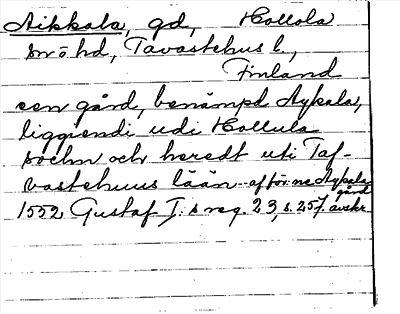 Aikkala, gd, Hollola
sn o hd, Tavastehus l.,
Finland
een gård, benämpd Aykala,
liggiendi udi Hollula
sochn och heredt uti Taf-
vastehuus lään - aff för:ne Aykala
gård
1552 Gustaf I:s reg. 23, s. 257. avskr.